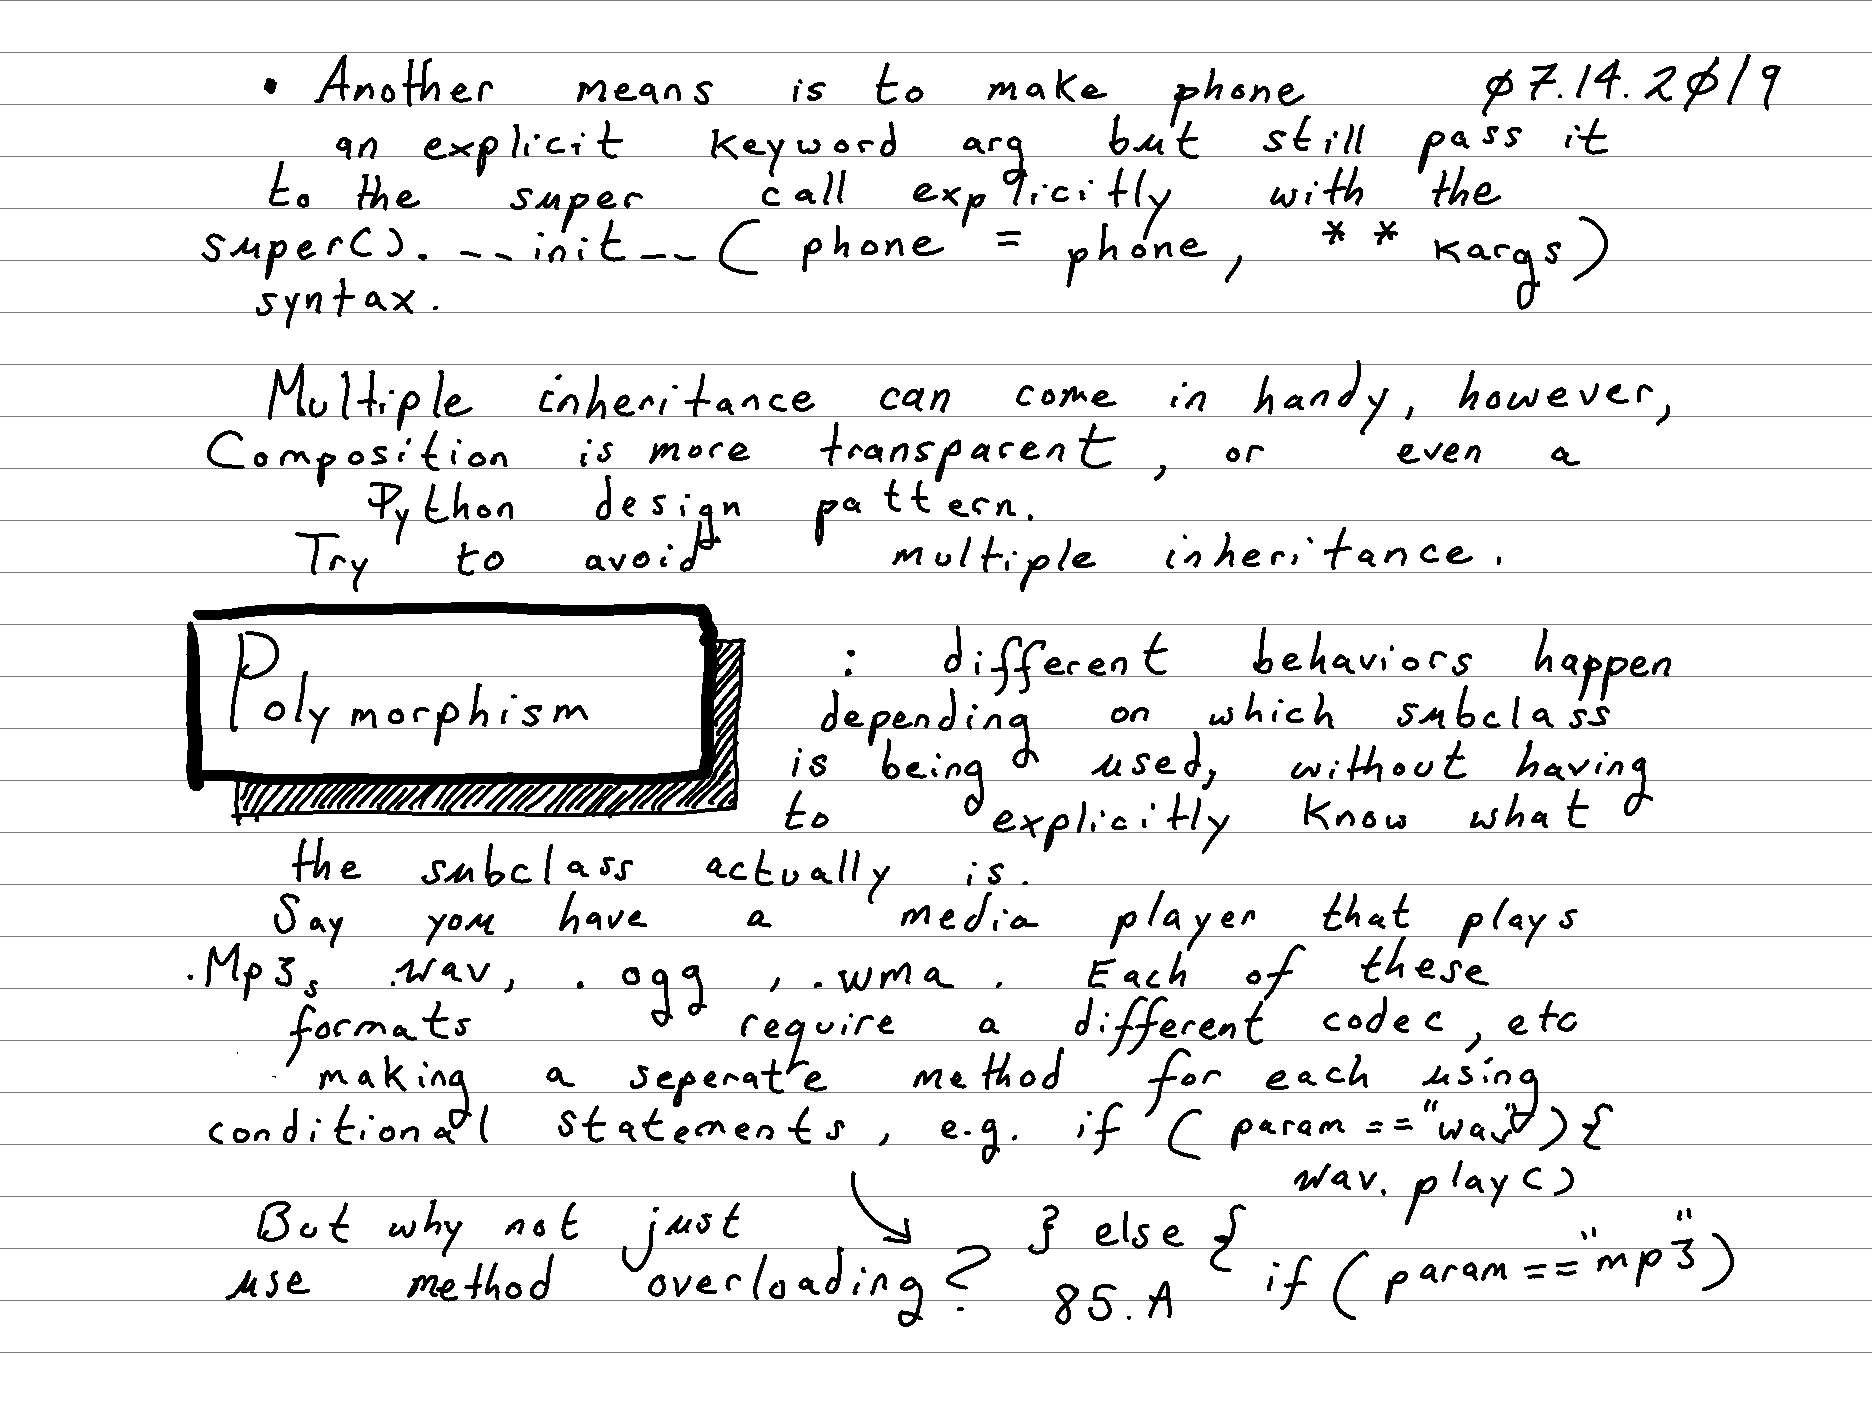 • Another means is to make phone 07.14.2019
an explicit keyword arg but still pass it
to the super call explicitly with the
super().__init__(phone = phone, **kargs)
syntax.
Multiple inheritance can come in handy, however,
Composition is more transparent, or even a
Python design pattern.
Try to avoid multiple inheritance.
Polymorphism : different behaviors happen
depending on which subclass
is being used, without having
to explicitly know what
the subclass actually is.
Say you have a media player that plays
.Mp3, .wav, .ogg, .wma. Each of these
formats require a different codec, etc
making a seperate method for each using
conditional statements, e.g. if (param == "wav"){
wav.play()
But why not just } else {
use method overloading? if (param == "mp3")
85.A